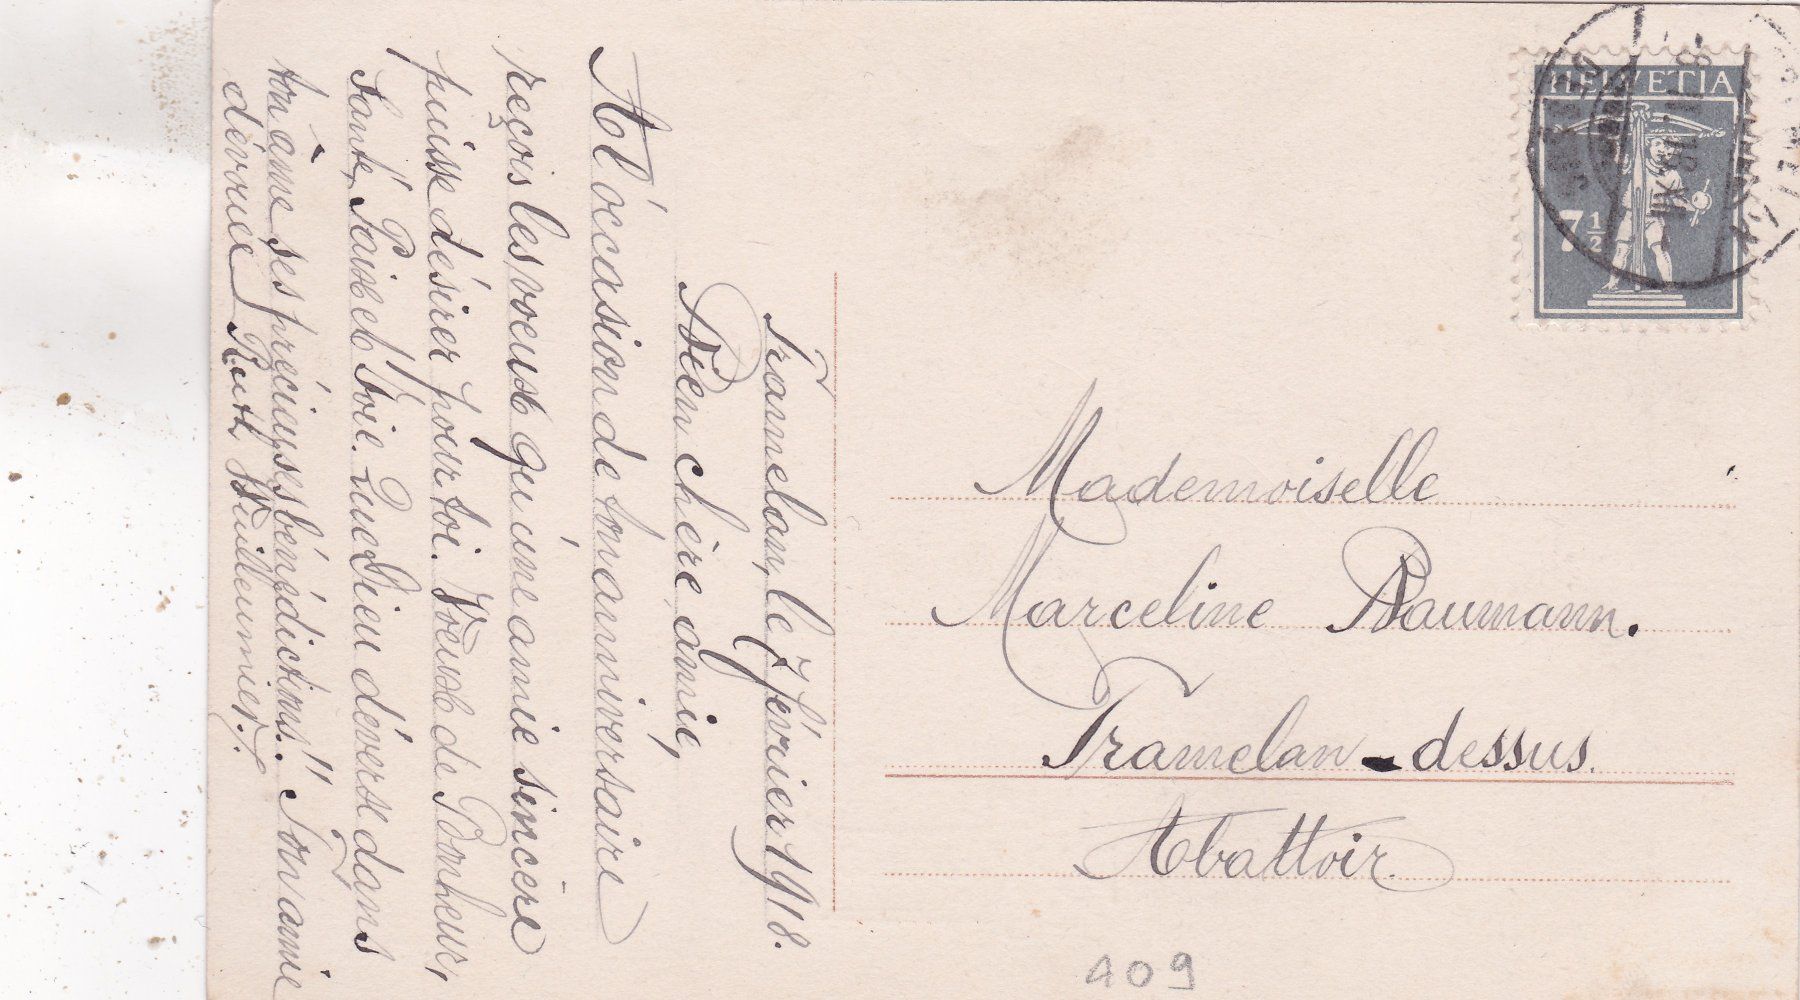 Tramelan, le 7 février 1918.
Bien chère amie,
A l'occasion de ton anniversaire
reçois les voeux qu'une amie sincère
puisse désirer pour toi. Voeux de Bonheur,
Santé, Paix et Joie. Que Dieu déverse dans
ton âme ses précieuses bénédictions!! Ton amie
dévouée Ruth Vuilleumier.
HELVETIA
7½
Mademoiselle
Marceline Baumann.
Tramelan-dessus.
Abattoir.
409